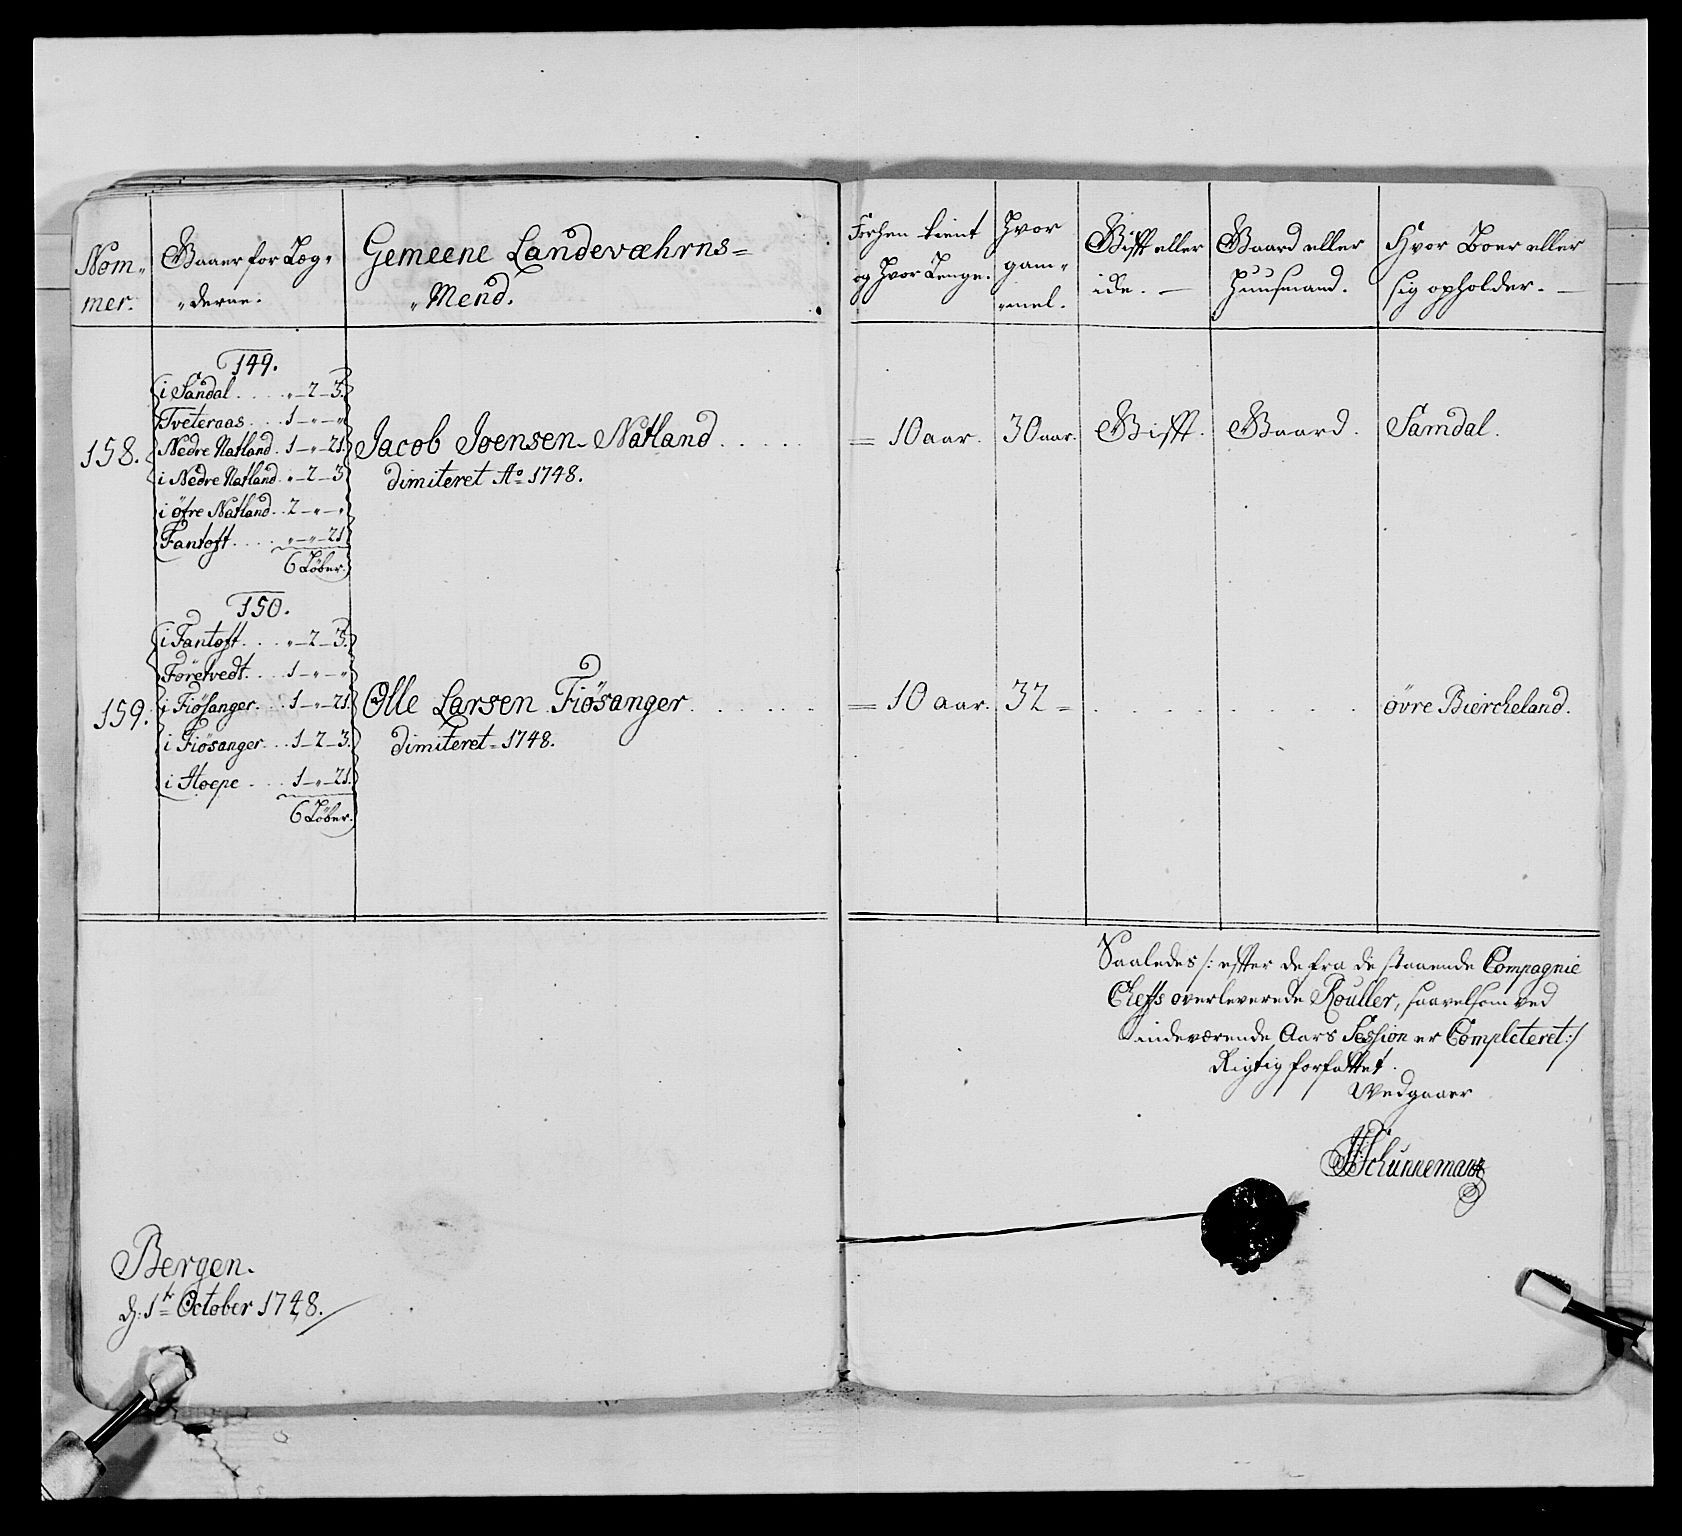 Nom„
mer.
Gaaer for Læg„
„derne.
Gemeene Landeværhns=
„Mend.
Forhen tient
og hvor lenge.
Hvor
gam„
„mel.
Gifft eller
ide. —
Gaard eller
Huusmand.
Hvor Boer eller
sig opholder. —
149.
i Sandal. . . . „ — 2 — 3.
Tveteraas. . . 1 — „ — „
158.
Nedre Natland. 1 — „ — 21.
i Nedre Natland. „ — 2 — 3
i öfre Natland. . 2 — „ — „
Fantoft. . . . „ — „ — 21
6 Løber.
Jacob Joensen Natland . . . . .
dimiteret Ao 1748.
= 10 aar.
30 aar.
Gifft.
Gaard.
Samdal.
150.
i Fantoft. . . . „ — 2 — 3.
Töretvedt. . . 1 — „ — „
159.
i Fiösanger. . . 1 — „ — 21.
i Fiösanger. . . 1 — 2 — 3.
i Hoepe . . . . 1 — „ — 21.
6 Løber.
Olle Larsen Fiösanger . . . . .
dimiteret = 1748.
= 10 aar.
32 =
övre Biercheland.
Saaledes /: effter de fra de staaende Compagnie
Cheffs overleverede Rouller, saavelsom ved
indeværende Aars Session er Completeret :/
Rigtig forfattet.
Vedgaaer
Schünneman
Bergen.
d: 1te October 1748.